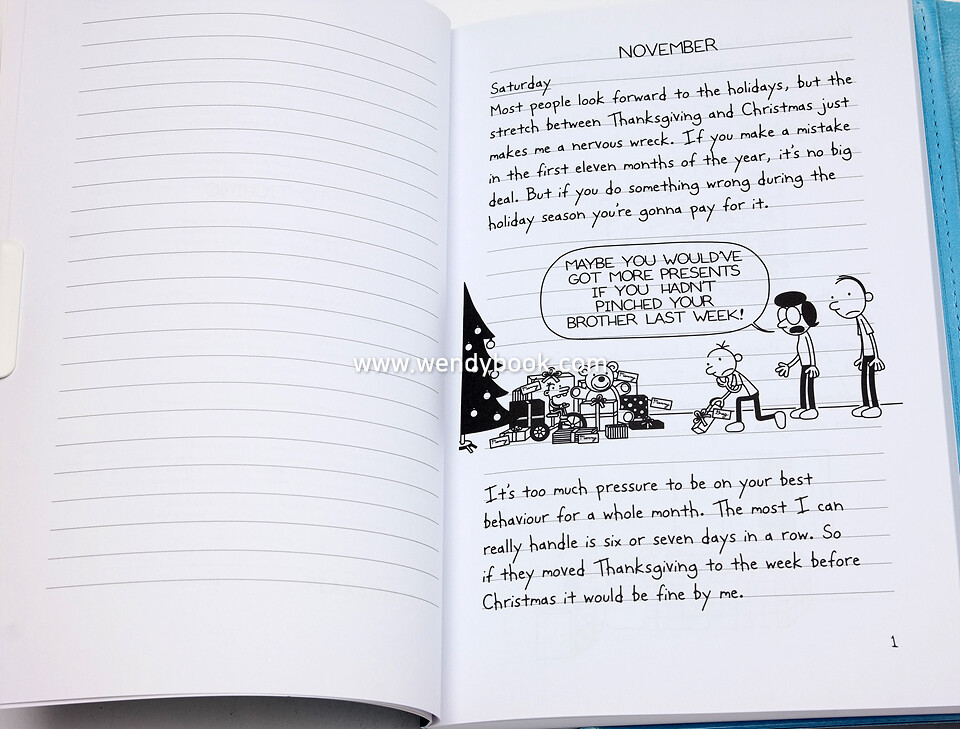 NOVEMBER
Saturday
Most people look forward to the holidays, but the
stretch between Thanksgiving and Christmas just
makes me a nervous wreck. If you make a mistake
in the first eleven months of the year, it's no big
deal. But if you do something wrong during the
holiday season you're gonna pay for it.
MAYBE YOU WOULD'VE
GOT MORE PRESENTS
IF YOU HADN'T
PINCHED YOUR
BROTHER LAST WEEK!
www.wendybook.com
It's too much pressure to be on your best
behaviour for a whole month. The most I can
really handle is six or seven days in a row. So
if they moved Thanksgiving to the week before
Christmas it would be fine by me.
1